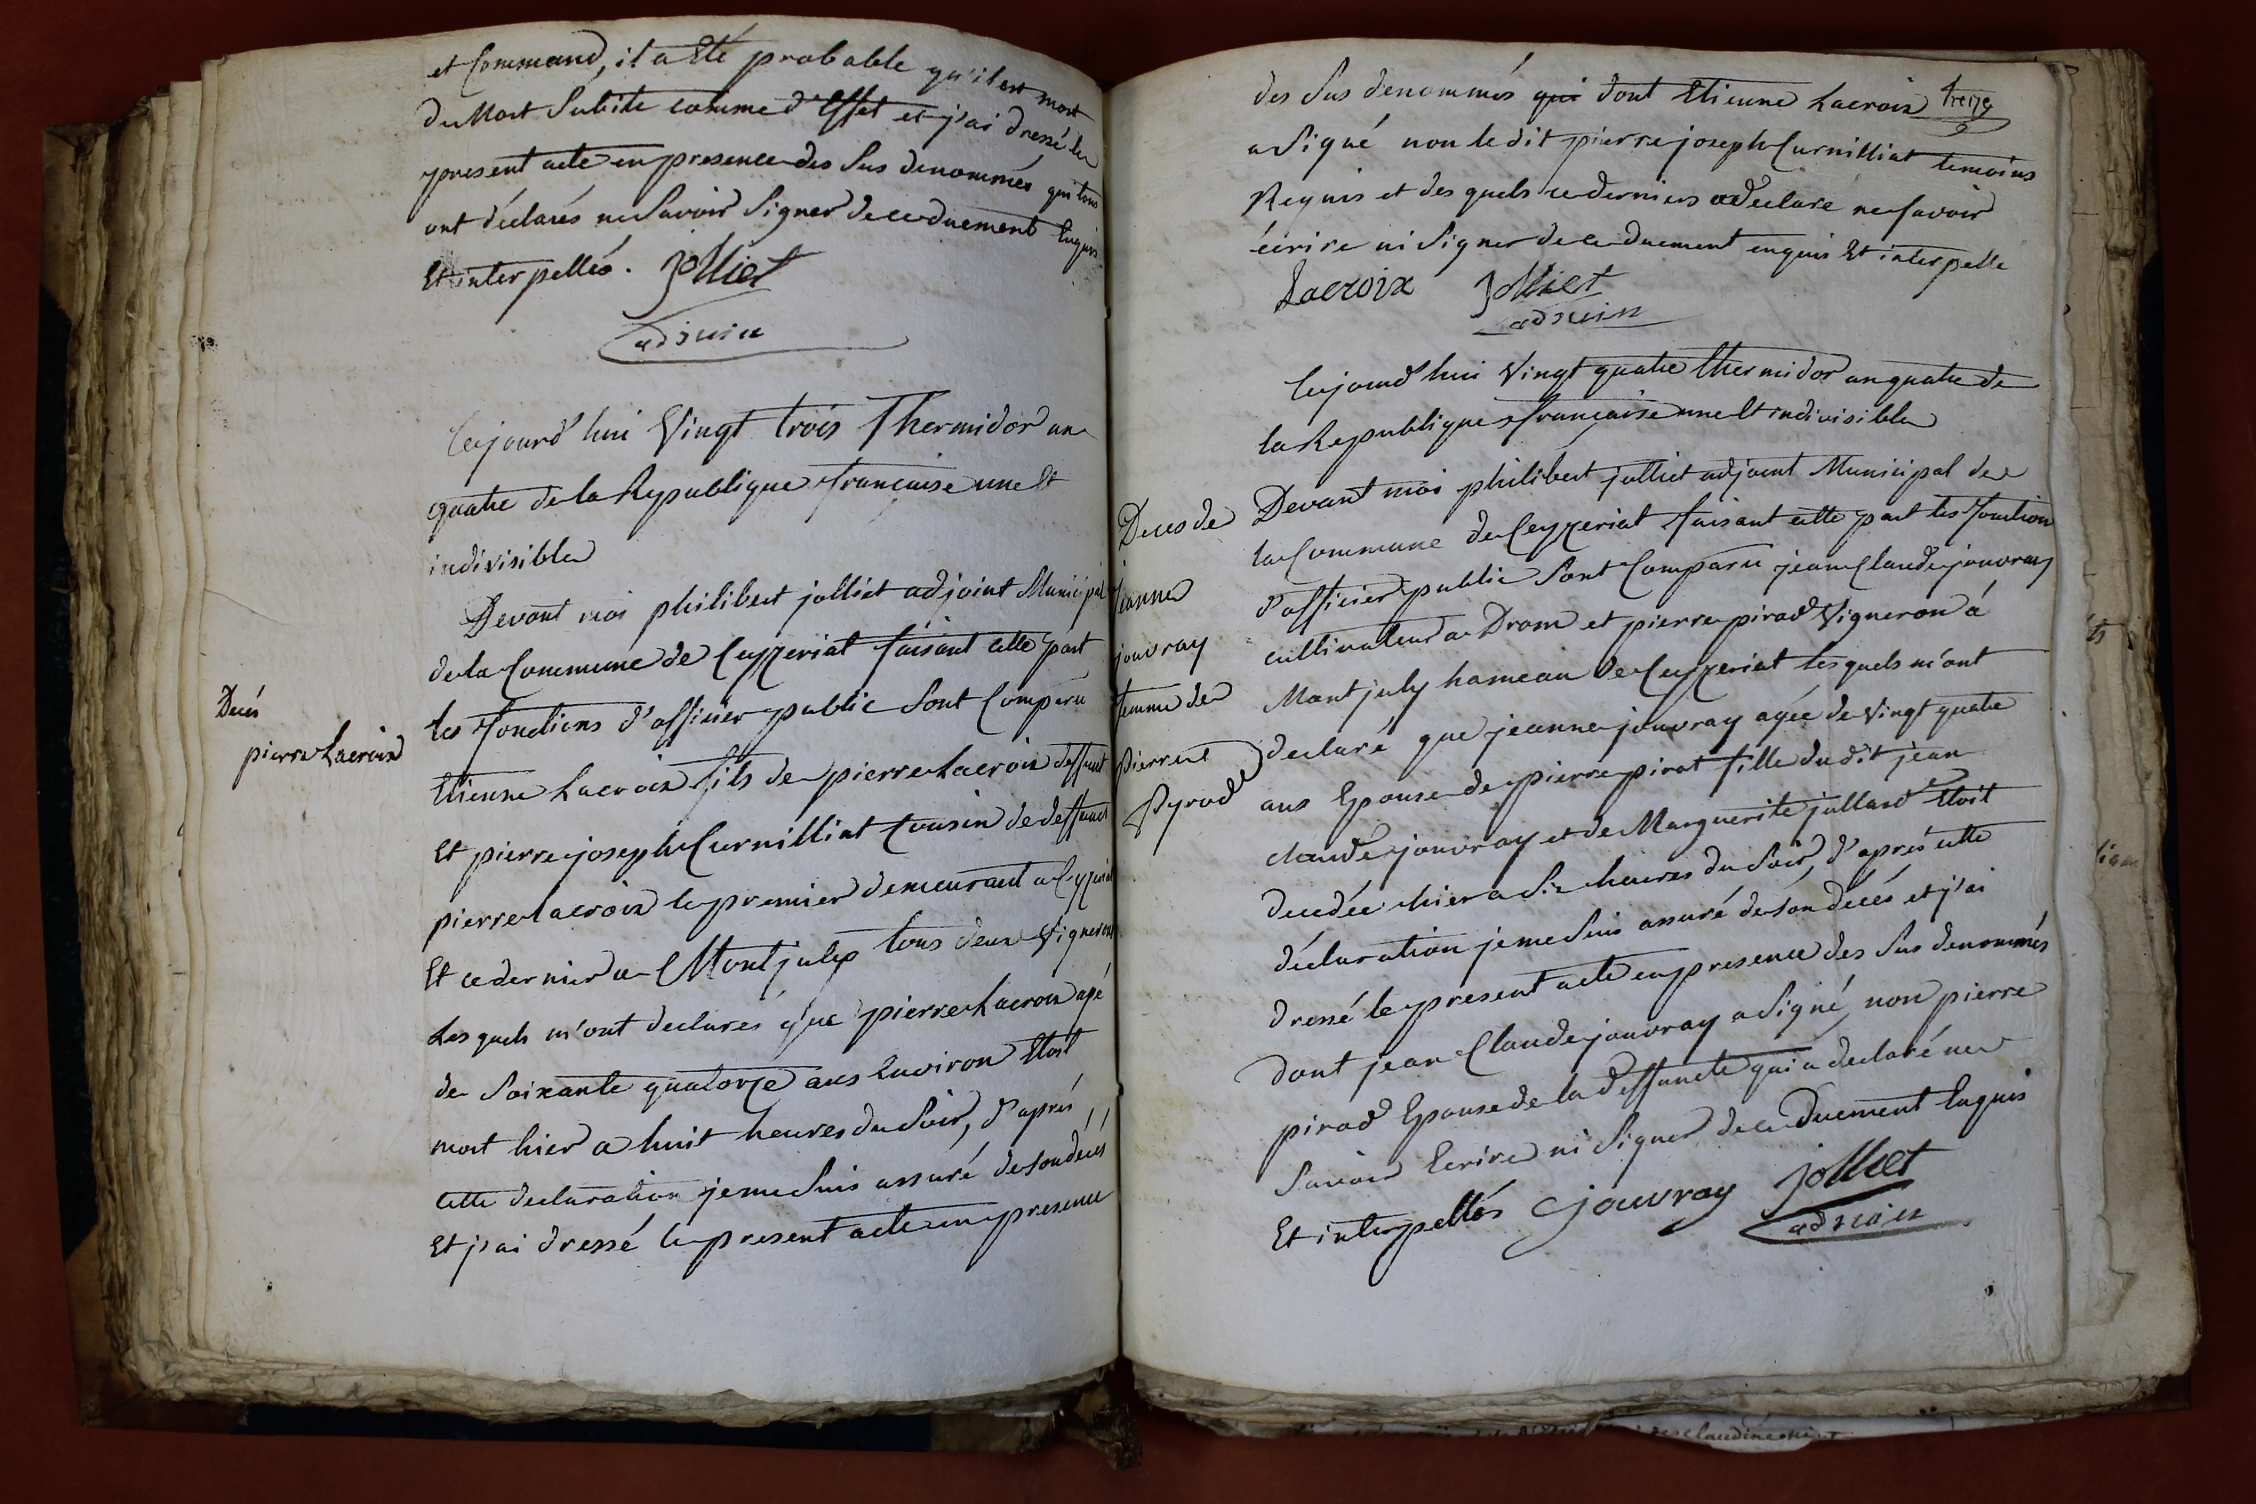 et Command, il a Eté probable qu'il est mort
du Mort Subite comme d'Effet et j'ai dressé le
present acte en presence des Sus denommés qui tous
ont déclarés ne Savoir Signer de ce duement Enquis
Et interpellés. Jolliet
adjoin
Cejourd'hui Vingt trois Thermidor an
quatre de la Republique française une Et
indivisible
Devant moi philibert jolliet adjoint Municipal
de la Commune de Ceyzeriat faisant cette part
les fonctions d'officier public Sont Comparu
Decés
pierre Lacroix
Etienne Lacroix fils de pierre Lacroix deffunt
Et pierre joseph Curnilliat Cousin de deffunct
pierre Lacroix le premier demeurant a Ceyzeriat
Et ce dernier a Montjuly tous deux Vignerons
Les quels m'ont declarés que pierre Lacroix agé
de Soixante quatorze ans Environ Etoit
mort hier a huit heures du Soir, d'aprés
cette declaration je me Suis assuré de son decés
Et j'ai dressé le present acte en presence
treize
des Sus denommés qui dont Etienne Lacroix
a Signé non le dit pierre joseph Curnilliat temoins
Requis et des quels ce derniers a declaré ne savoir
écrire ni Signer de ce duement enquis Et interpellé
Lacroix Jolliet
adjoin
Cejourd'hui Vingt quatre thermidor an quatre de
la Republique française une Et indivisible
Deces de
jeanne
jouvray
femme de
Pierre
Pyrod
Devant moi philibert jolliet adjoint Municipal de
la Commune de Ceyzeriat faisant cette part les fonction
d'officier public Sont Comparu jean Claude jouvray
cultivateur a Drom et pierre pirod Vigneron á
Montjuly hameau de Ceyzeriat les quels m'ont
declaré que jeanne jouvray agée de Vingt quatre
ans Epouse de pierre pirot fille du dit jean
claude jouvray et de Marguerite jullard Etoit
decedée hier a Six heures du Soir, d'aprés cette
déclaration je me Suis assuré de són decés et j'ai
dressé le present acte en presence des Sus denommés
dont jean Claude jouvray a Signé non pierre
pirod Epouse de la deffuncte qui a declaré ne
Savoir Ecrire ni Signer de ce duement Enquis
Et interpellés Cjouvray jolliet
adjoin